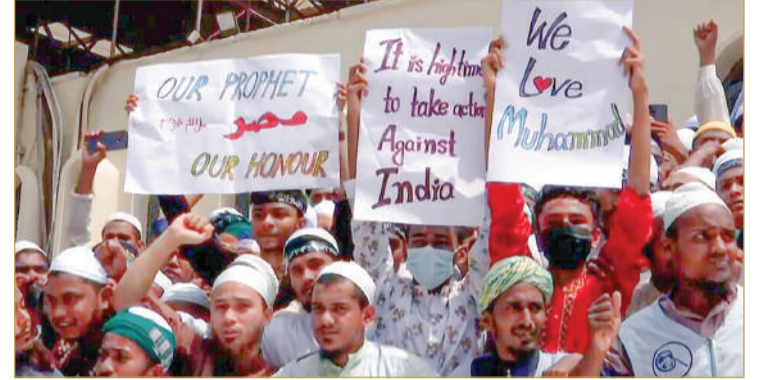 OUR PROPHET
مصر
OUR HONOUR
It is high time
to take action
Against
India
We
Love
Muhammad